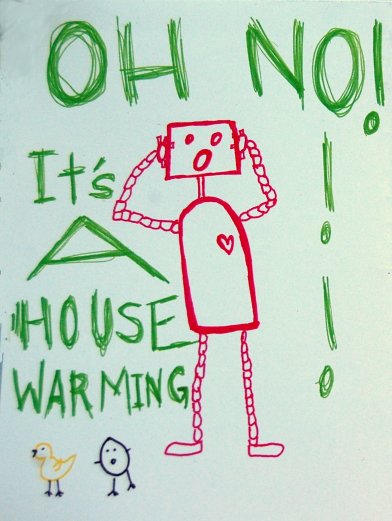 OH NO!!!
It's
A
HOUSE
WARMING